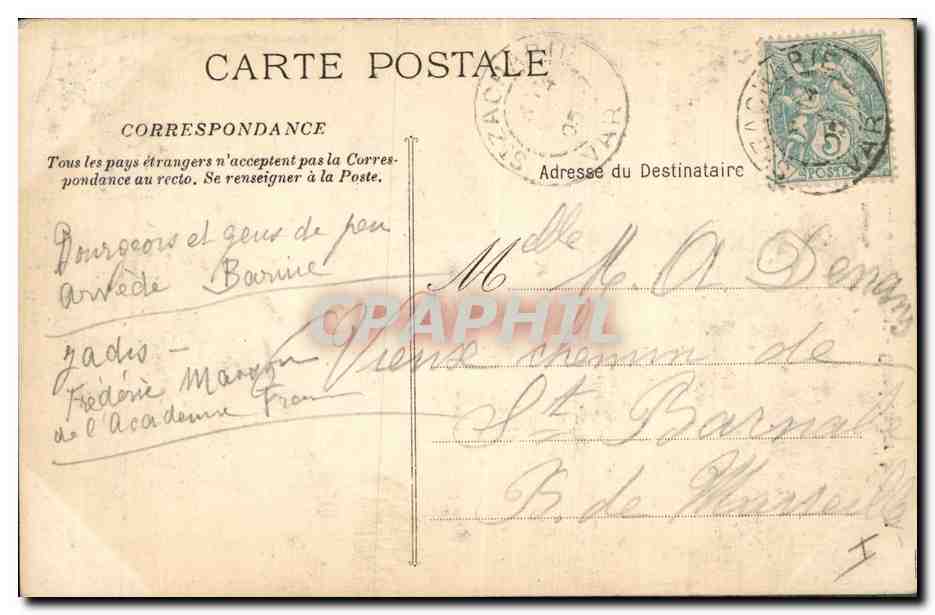 CARTE POSTALE
ST ZACHARIE
VAR
05
ZACHARIE
VAR
5c
POSTE
CORRESPONDANCE
Tous les pays étrangers n'acceptent pas la Corres-
pondance au recto. Se renseigner à la Poste.
Adresse du Destinataire
Bourgeois et gens de peu
Arvède Barine
Jadis —
Frédéric Masson
de l'Academie Fran
Melle M. A. Denans
Vieux chemin de
St Barnabé
B. de Marseille
I
CPAPHIL